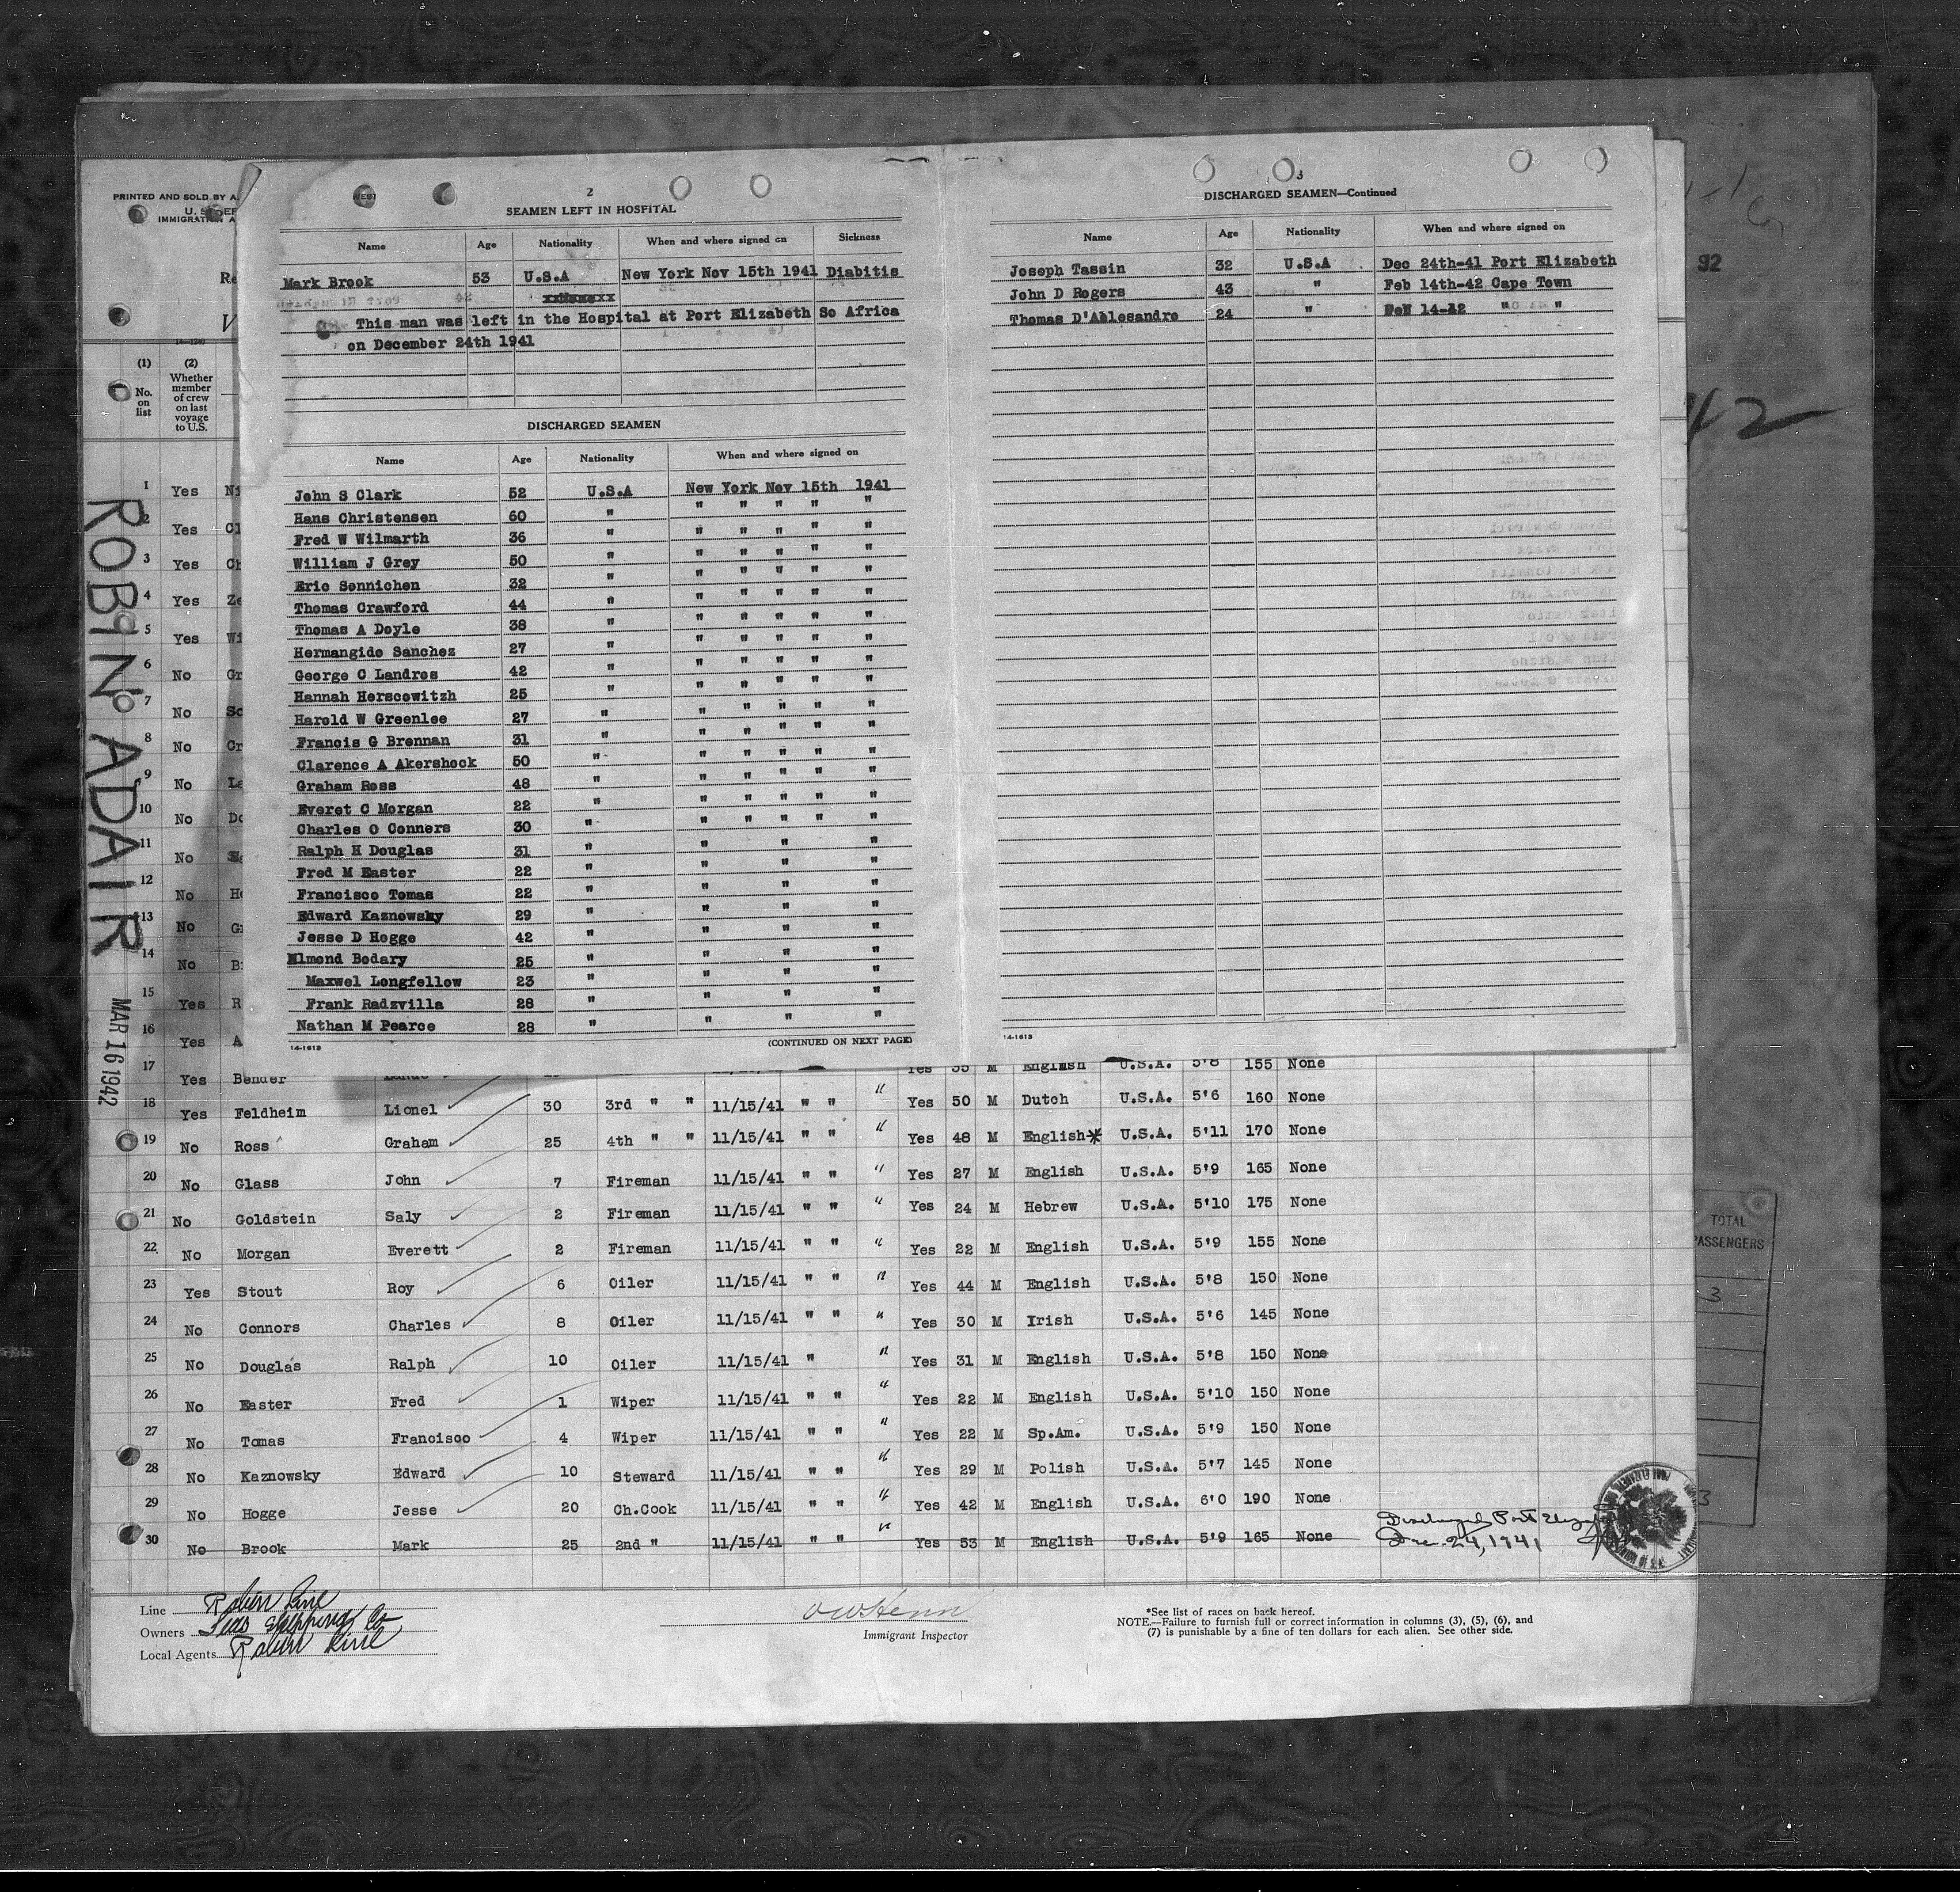 PRINTED AND SOLD BY A.
IMMIGRATION A
Re
V
(1) (2)
No. on list
Whether member of crew on last voyage to U.S.
ROBIN ADAIR
MAR 16 1942
2
SEAMEN LEFT IN HOSPITAL
Name Age Nationality When and where signed on Sickness
Mark Brook 53 U.S.A New York Nov 15th 1941 Diabitis
This man was left in the Hospital at Port Elizabeth So Africa
on December 24th 1941
DISCHARGED SEAMEN
Name Age Nationality When and where signed on
John S Clark 52 U.S.A New York Nov 15th 1941
Hans Christensen 60 " " " " " "
Fred W Wilmarth 36 " " " " " "
William J Grey 50 " " " " " "
Eric Sennichen 32 " " " " " "
Thomas Crawford 44 " " " " " "
Thomas A Doyle 38 " " " " " "
Hermangido Sanchez 27 " " " " " "
George C Landros 42 " " " " " "
Hannah Herscowitzh 25 " " " " " "
Harold W Greenlee 27 " " " " " "
Francis G Brennan 31 " " " " " "
Clarence A Akershock 50 " " " " " "
Graham Ross 48 " " " " " "
Everet C Morgan 22 " " " " " "
Charles O Conners 30 " " " " " "
Ralph H Douglas 31 " " " "
Fred M Easter 22 " " " "
Francisco Tomas 22 " " " "
Edward Kaznowsky 29 " " " "
Jesse D Hogge 42 " " " "
Elmond Bodary 25 " " " "
Maxwel Longfellow 23 " " " "
Frank Radzvilla 28 " " " "
Nathan M Pearce 28 " " " "
14-1613 (CONTINUED ON NEXT PAGE)
3
DISCHARGED SEAMEN—Continued
Name Age Nationality When and where signed on
Joseph Tassin 32 U.S.A Dec 24th-41 Port Elizabeth
John D Rogers 43 " Feb 14th-42 Cape Town
Thomas D'Allesandre 24 " 14-42 " "
14-1613
92
42
1 Yes Ni
2 Yes Cl
3 Yes Ch
4 Yes Ze
5 Yes Wi
6 No Gr
7 No Sc
8 No Cr
9 No La
10 No Do
11 No
12 No He
13 No G
14 No B
15 Yes R
16 Yes A
17 Yes Bender Yes 35 M English U.S.A. 5'8 155 None
18 Yes Feldheim Lionel 30 3rd " " 11/15/41 " " " Yes 50 M Dutch U.S.A. 5'6 160 None
19 No Ross Graham 25 4th " " 11/15/41 " " " Yes 48 M English* U.S.A. 5'11 170 None
20 No Glass John 7 Fireman 11/15/41 " " " Yes 27 M English U.S.A. 5'9 165 None
21 No Goldstein Saly 2 Fireman 11/15/41 " " " Yes 24 M Hebrew U.S.A. 5'10 175 None
22 No Morgan Everett 2 Fireman 11/15/41 " " " Yes 22 M English U.S.A. 5'9 155 None
23 Yes Stout Roy 6 Oiler 11/15/41 " " " Yes 44 M English U.S.A. 5'8 150 None
24 No Connors Charles 8 Oiler 11/15/41 " " " Yes 30 M Irish U.S.A. 5'6 145 None
25 No Douglas Ralph 10 Oiler 11/15/41 " " Yes 31 M English U.S.A. 5'8 150 None
26 No Easter Fred 1 Wiper 11/15/41 " " " Yes 22 M English U.S.A. 5'10 150 None
27 No Tomas Francisco 4 Wiper 11/15/41 " " " Yes 22 M Sp.Am. U.S.A. 5'9 150 None
28 No Kaznowsky Edward 10 Steward 11/15/41 " " " Yes 29 M Polish U.S.A. 5'7 145 None
29 No Hogge Jesse 20 Ch.Cook 11/15/41 " " " Yes 42 M English U.S.A. 6'0 190 None
30 No Brook Mark 25 2nd " 11/15/41 " " " Yes 53 M English U.S.A. 5'9 165 None Discharged Port Eliza
Dec. 24, 1941
TOTAL
PASSENGERS
3
3
Line Robin Line
Owners Seas Shipping Co
Local Agents Robin Line
Immigrant Inspector
*See list of races on back hereof.
NOTE.—Failure to furnish full or correct information in columns (3), (5), (6), and
(7) is punishable by a fine of ten dollars for each alien. See other side.